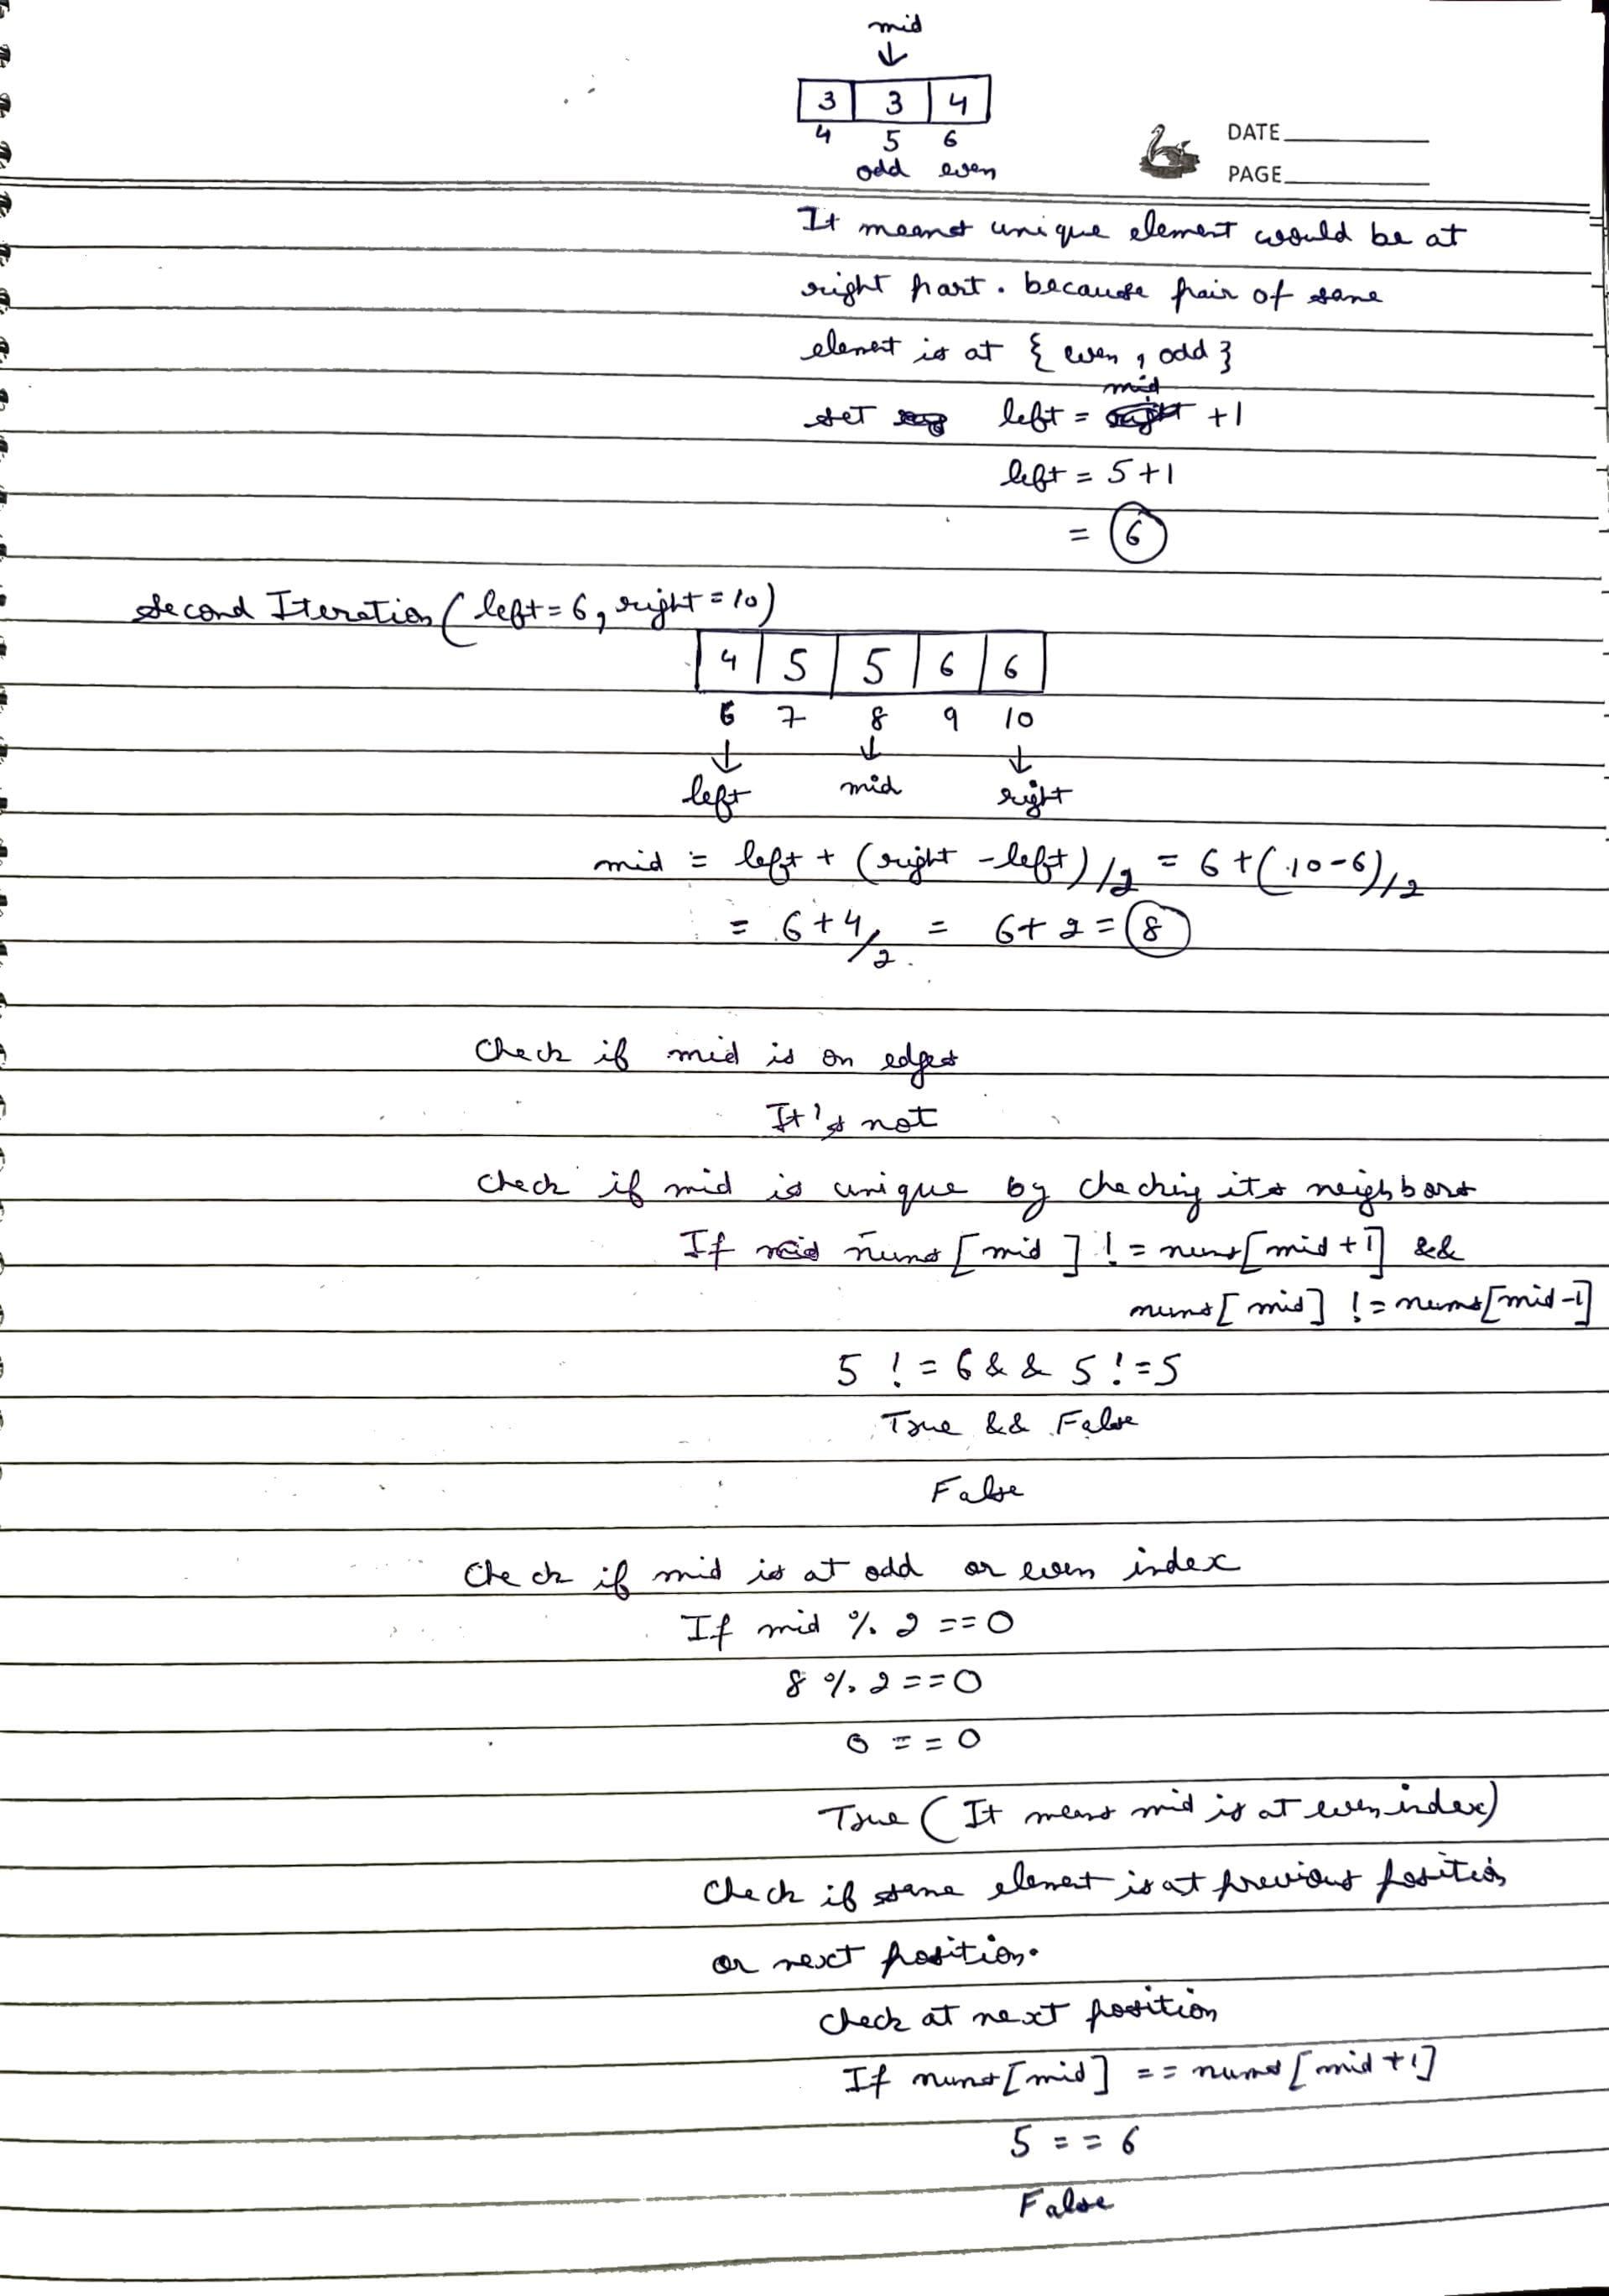 mid
↓
3 3 4
4 5 6
odd even
DATE
PAGE
It means unique element would be at
right part. because pair of same
element is at { even, odd }
mid
set left = +1
left = 5+1
= 6
Second Iteration ( left=6, right=10)
4 5 5 6 6
6 7 8 9 10
↓ ↓ ↓
left mid right
mid = left + (right - left)/2 = 6+(10-6)/2
= 6+4/2 = 6+2 = 8
Check if mid is on edges
It's not
Check if mid is unique by checking its neighbors
If nums[mid] != nums[mid+1] &&
nums[mid] != nums[mid-1]
5 != 6 && 5 != 5
True && False
False
Check if mid is at odd or even index
If mid % 2 == 0
8 % 2 == 0
0 == 0
True ( It means mid is at even index)
Check if same element is at previous position
or next position.
Check at next position
If nums[mid] == nums[mid+1]
5 == 6
False